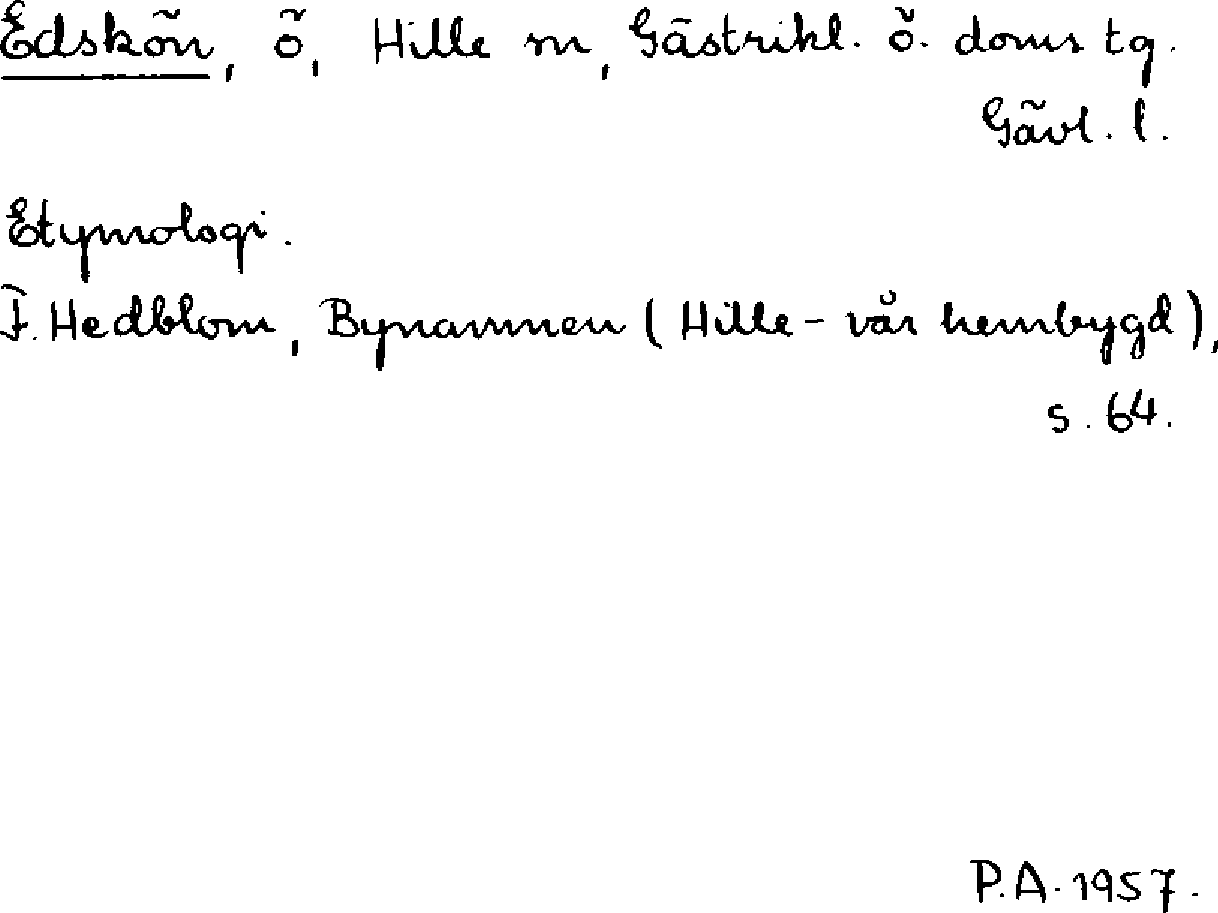 Edskön, ö, Hille sn, Gästrikl. ö. doms tg.
Gävl. l.
Etymologi.
F. Hedblom, Bynamnen (Hille - vår hembygd),
s. 64.
P.A. 1957.